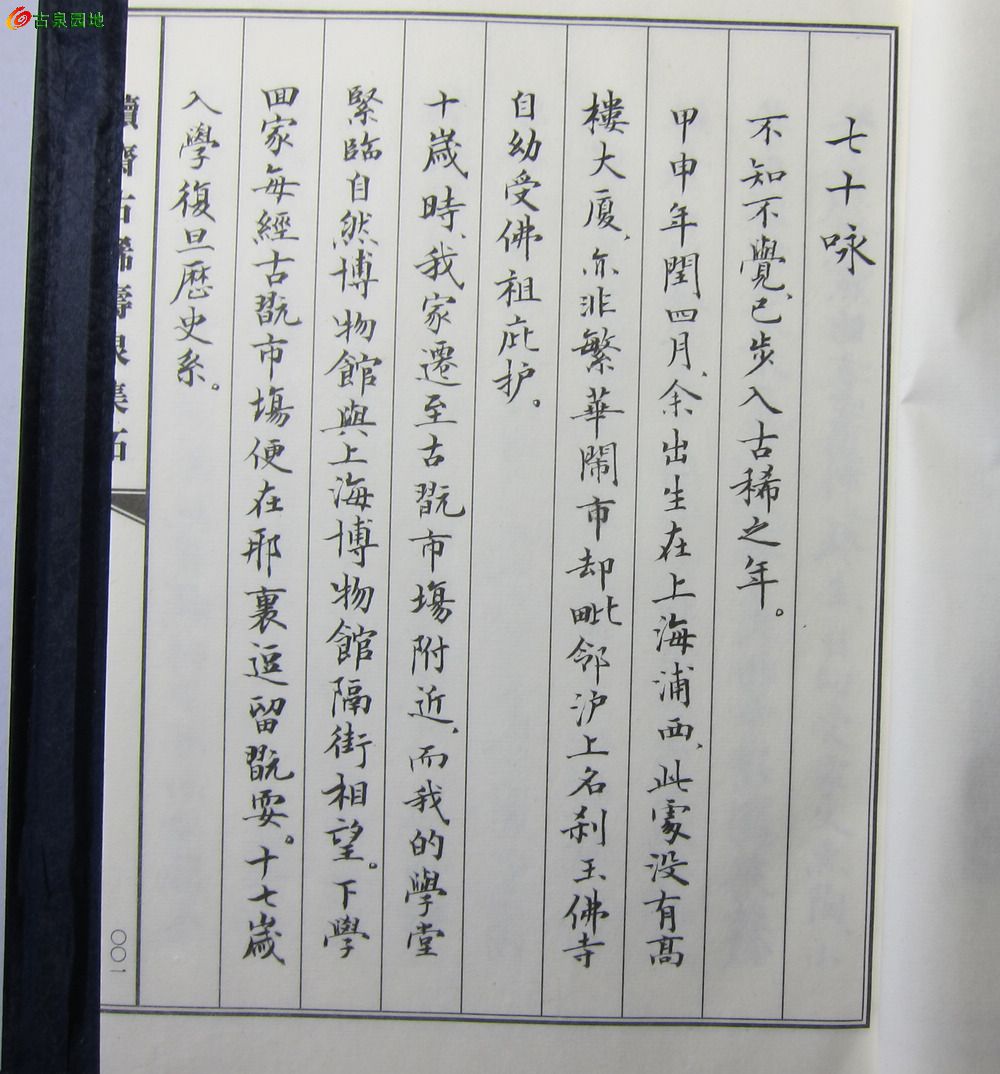 七十咏
不知不覺、已步入古稀之年。
甲申年閏四月、余出生在上海浦西、此處没有高
樓大厦、亦非繁華鬧市却毗邻沪上名刹玉佛寺
自幼受佛祖庇护。
十歲時、我家遷至古翫市塲附近、而我的學堂
緊臨自然博物館與上海博物館隔街相望。下學
回家每經古翫市塲便在那裏逗留翫耍。十七歲
入學復旦歷史系。
齋古稀壽泉集拓
〇〇一
古泉园地